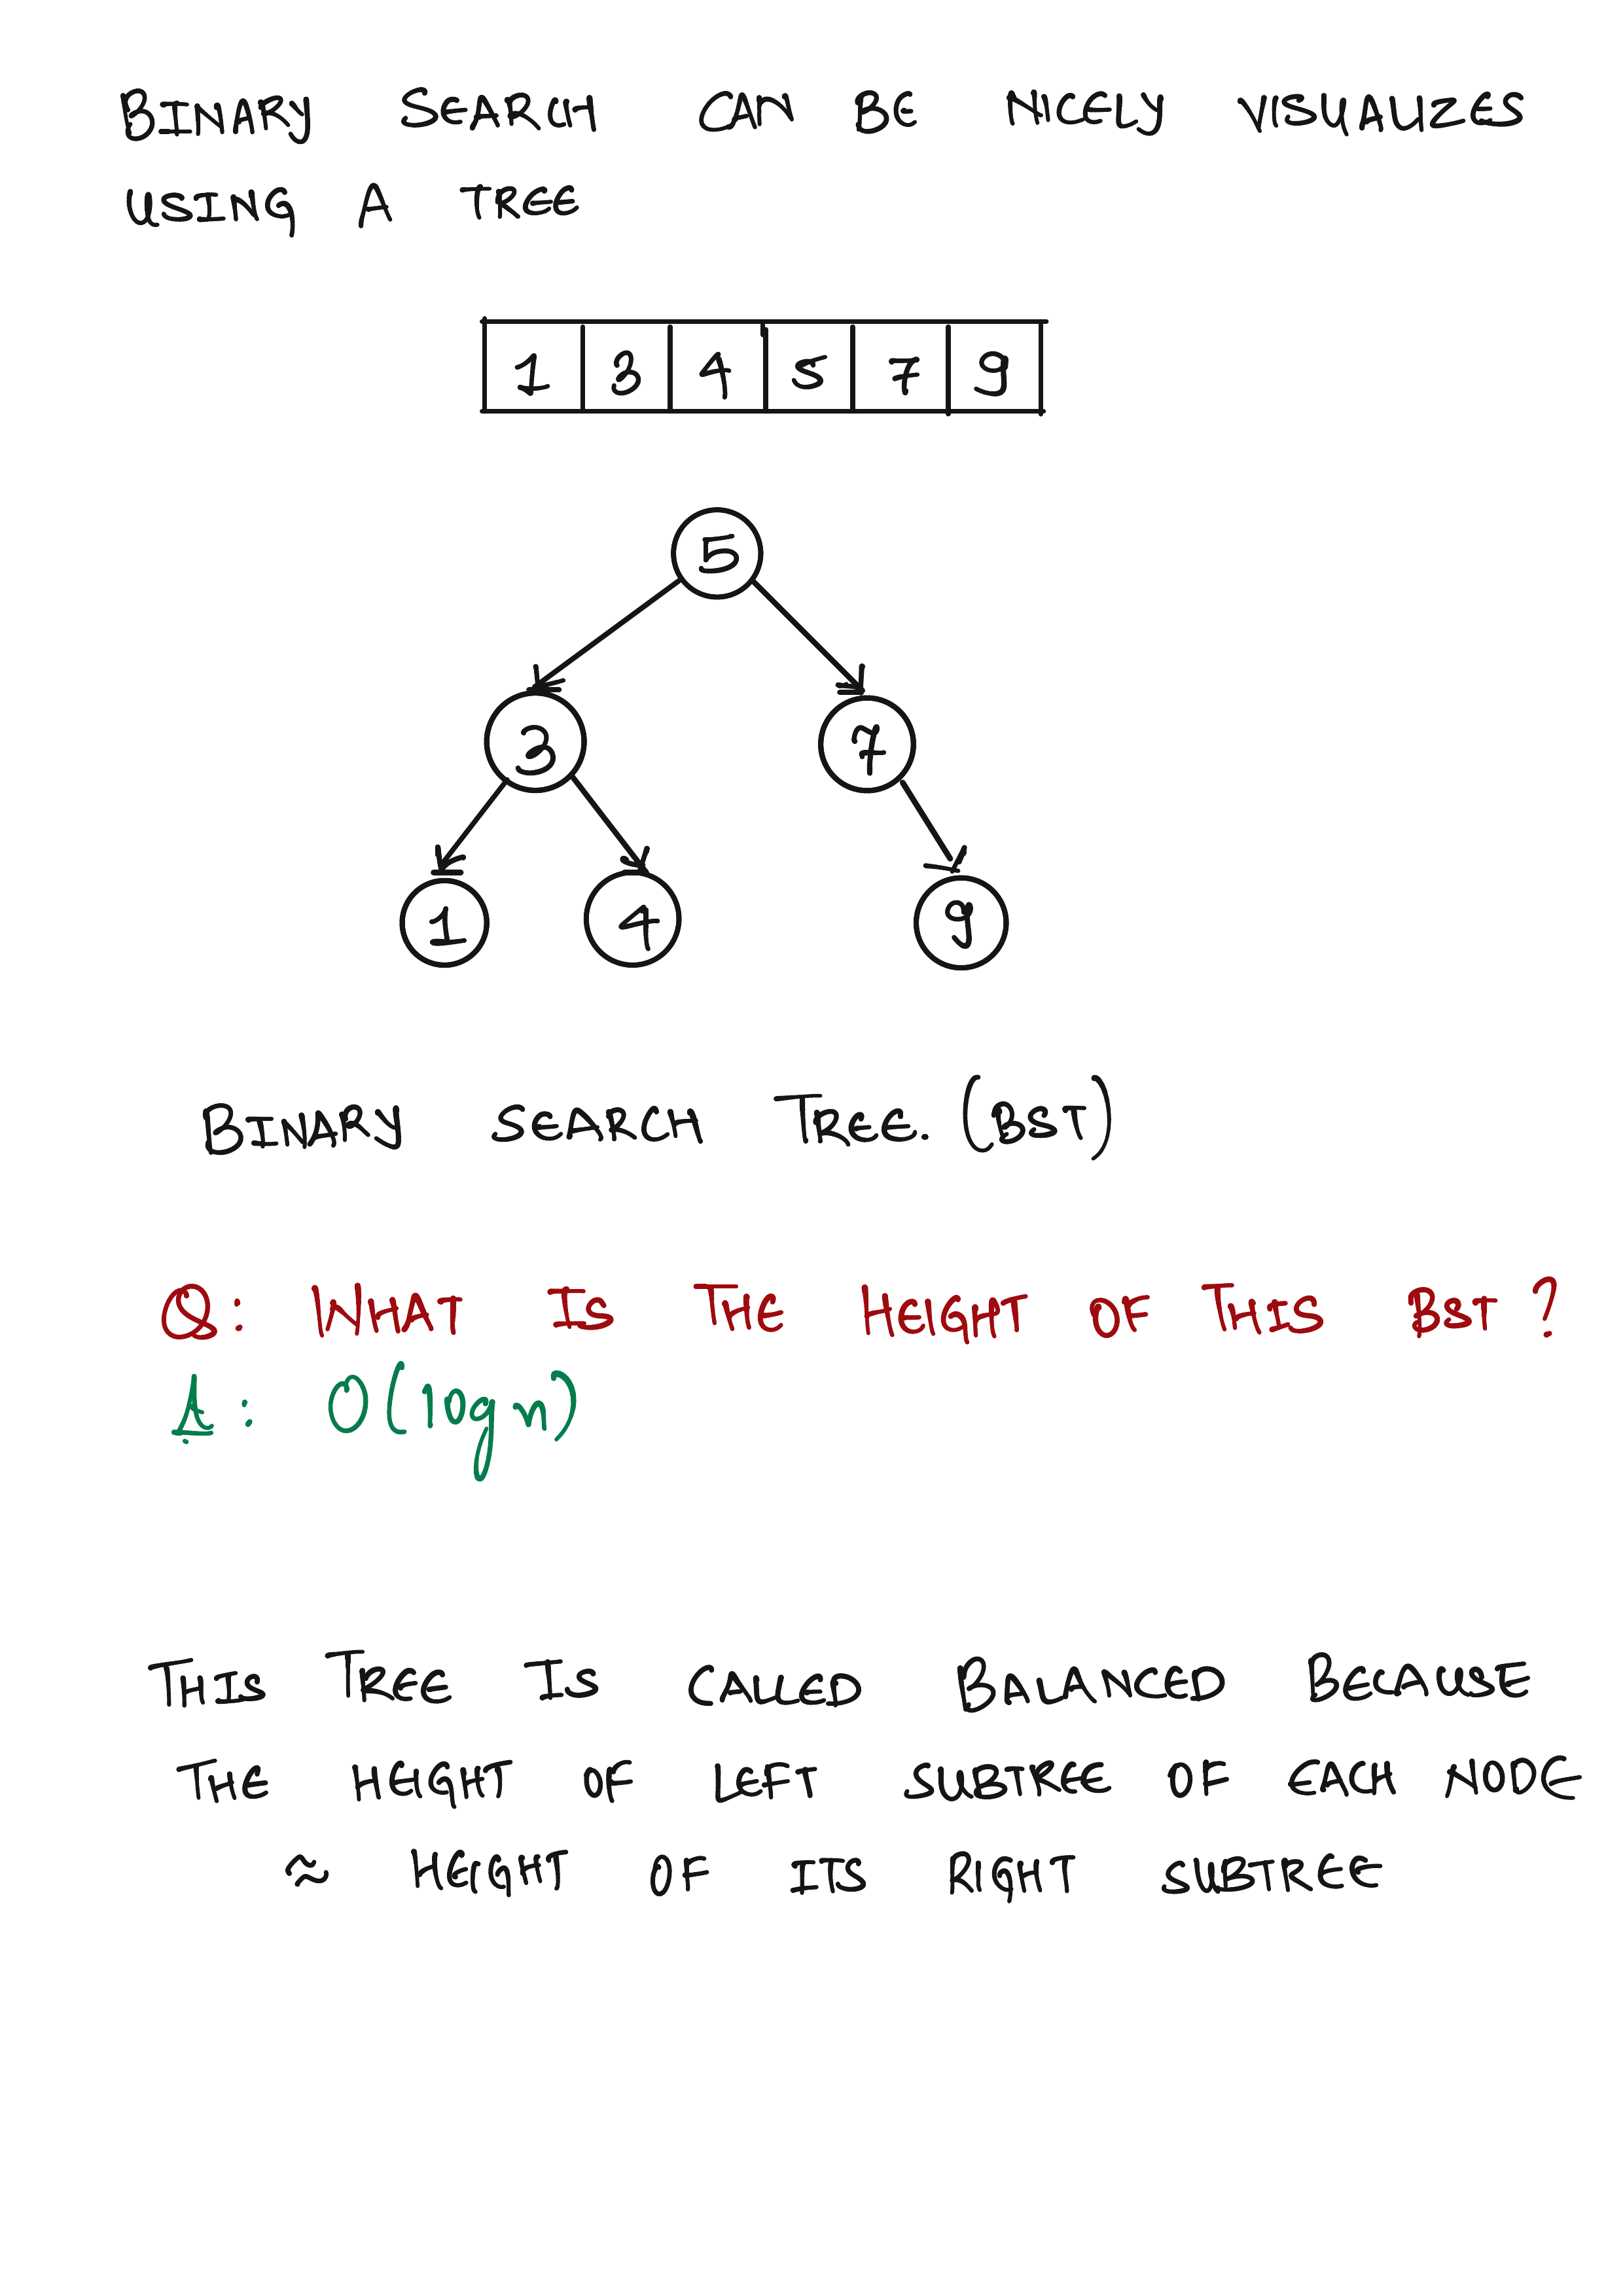 BINARY SEARCH CAN BE NICELY VISUALIZES
USING A TREE
1 3 4 5 7 9
5
3 7
1 4 9
BINARY SEARCH TREE. (BST)
Q: WHAT IS THE HEIGHT OF THIS BST?
A: O(log n)
THIS TREE IS CALLED BALANCED BECAUSE
THE HEIGHT OF LEFT SUBTREE OF EACH NODE
≈ HEIGHT OF ITS RIGHT SUBTREE